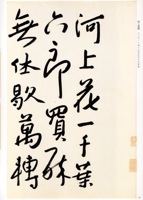 河上花一千葉
六郎買醉
無休歇萬轉